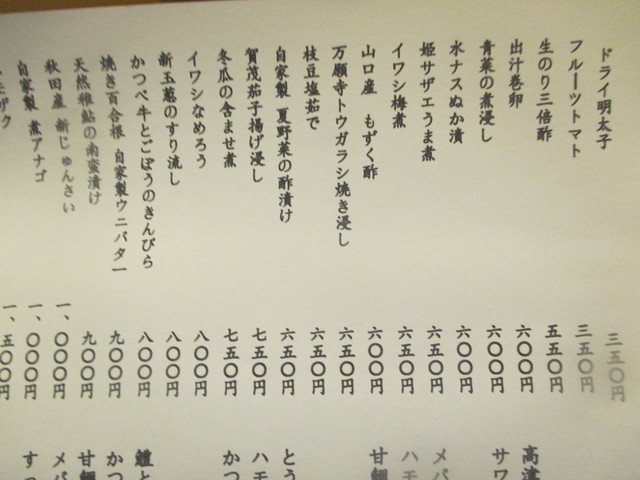 ドライ明太子 三五〇円
フルーツトマト 三五〇円
生のり三倍酢 五五〇円
出汁巻卵 六〇〇円
青菜の煮浸し 六〇〇円
水ナスぬか漬 六〇〇円
姫サザエうま煮 六五〇円
イワシ梅煮 六五〇円
山口産 もずく酢 六〇〇円
万願寺トウガラシ焼き浸し 六五〇円
枝豆塩茹で 六五〇円
自家製 夏野菜の酢漬け 六五〇円
賀茂茄子揚げ浸し 七五〇円
冬瓜の含ませ煮 七五〇円
イワシなめろう 八〇〇円
新玉葱のすり流し 八〇〇円
かつべ牛とごぼうのきんぴら 八〇〇円
焼き百合根 自家製ウニバター 九〇〇円
天然稚鮎の南蛮漬け 九〇〇円
秋田産 新じゅんさい 一、〇〇〇円
自家製 煮アナゴ 一、〇〇〇円
モザク 一、五〇〇円
高津
サワ
メバ
ハモ
甘鯛
とう
ハモ
かつ
鱧と
かつ
甘鯛
メバ
すっ